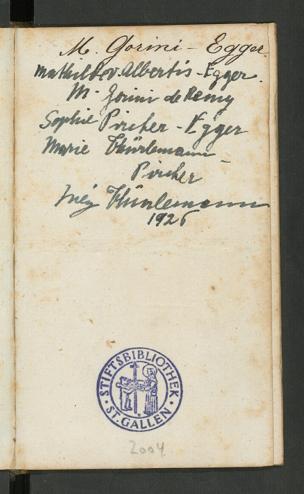 M. Gorini - Egger
Mathilde v. Albertis - Egger.
M - Gorini de Remy
Sophie Pircher - Egger
Marie Thürlemann -
Pircher
Inéz Thürlemann
1926
STIFTSBIBLIOTHEK
ST. GALLEN
2004